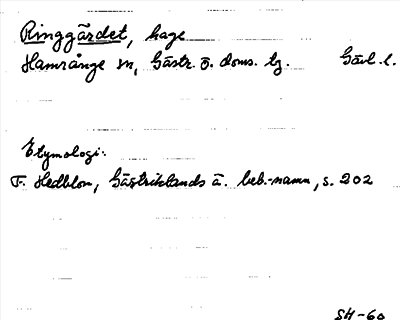 Ringgärdet, hage
Hamrånge sn, Gästr. ö. doms. tg. Gävl. l.
Etymologi:
F. Hedblom, Gästriklands ä. beb.-namn, s. 202
SH-60